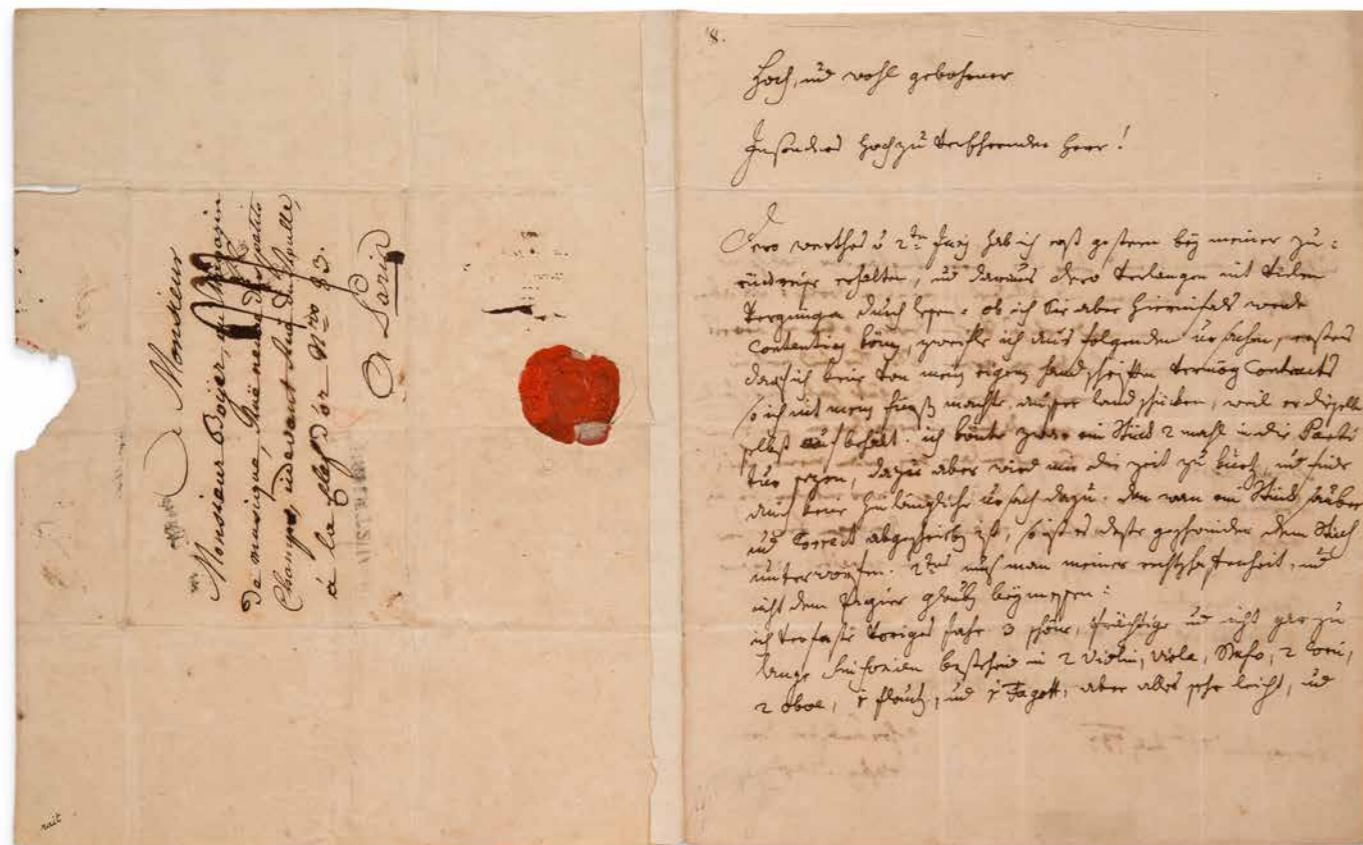 A Monsieur
Monsieur Boyer, au Magazin
de musique, Rüe neuve des petits
Champs, cidevant Rue du Roulle,
à la Clef d'or Nro 83.
A Paris
rait
8.
Hoch, und wohl gebohrner
Insonders hochzuverEhrender Herr!
Dero werthes v 2ten Juny hab ich erst gestern bey meiner zu=
rückreise erhalten, und daraus dero verlangen mit vielen
Vergnügen durchlesen. ob ich Sie aber hierinfals werde
Contentiren könen, zweifle ich aus folgenden ursachen, erstens
darf ich keine von meinen eigenen handschriften vermög Contracts
so ich mit meinem Fürst machte, ausser land schicken, weil er dieselbe
selbst aufbehält. ich könte zwar ein Stück 2 mahl in die Parti
tur sezen, dazu aber wird mir die zeit zu kurtz, und finde
auch keine hinlängliche ursach dazu. den wan ein Stück sauber
und Correct abgeschrieben ist, so ist es desto geschwinder dem Stich
unterworfen. 2tens muss man meiner rechtschaffenheit, und
nicht dem Papier glauben beymessen:
ich verfaste voriges Jahr 3 schöne, prächtige und nicht gar zu
lange Sinfonien bestehend in 2 Violin, Viola, Basso, 2 Corni,
2 oboe, 1 flauto, und 1 Fagott, aber alles sehr leicht, und